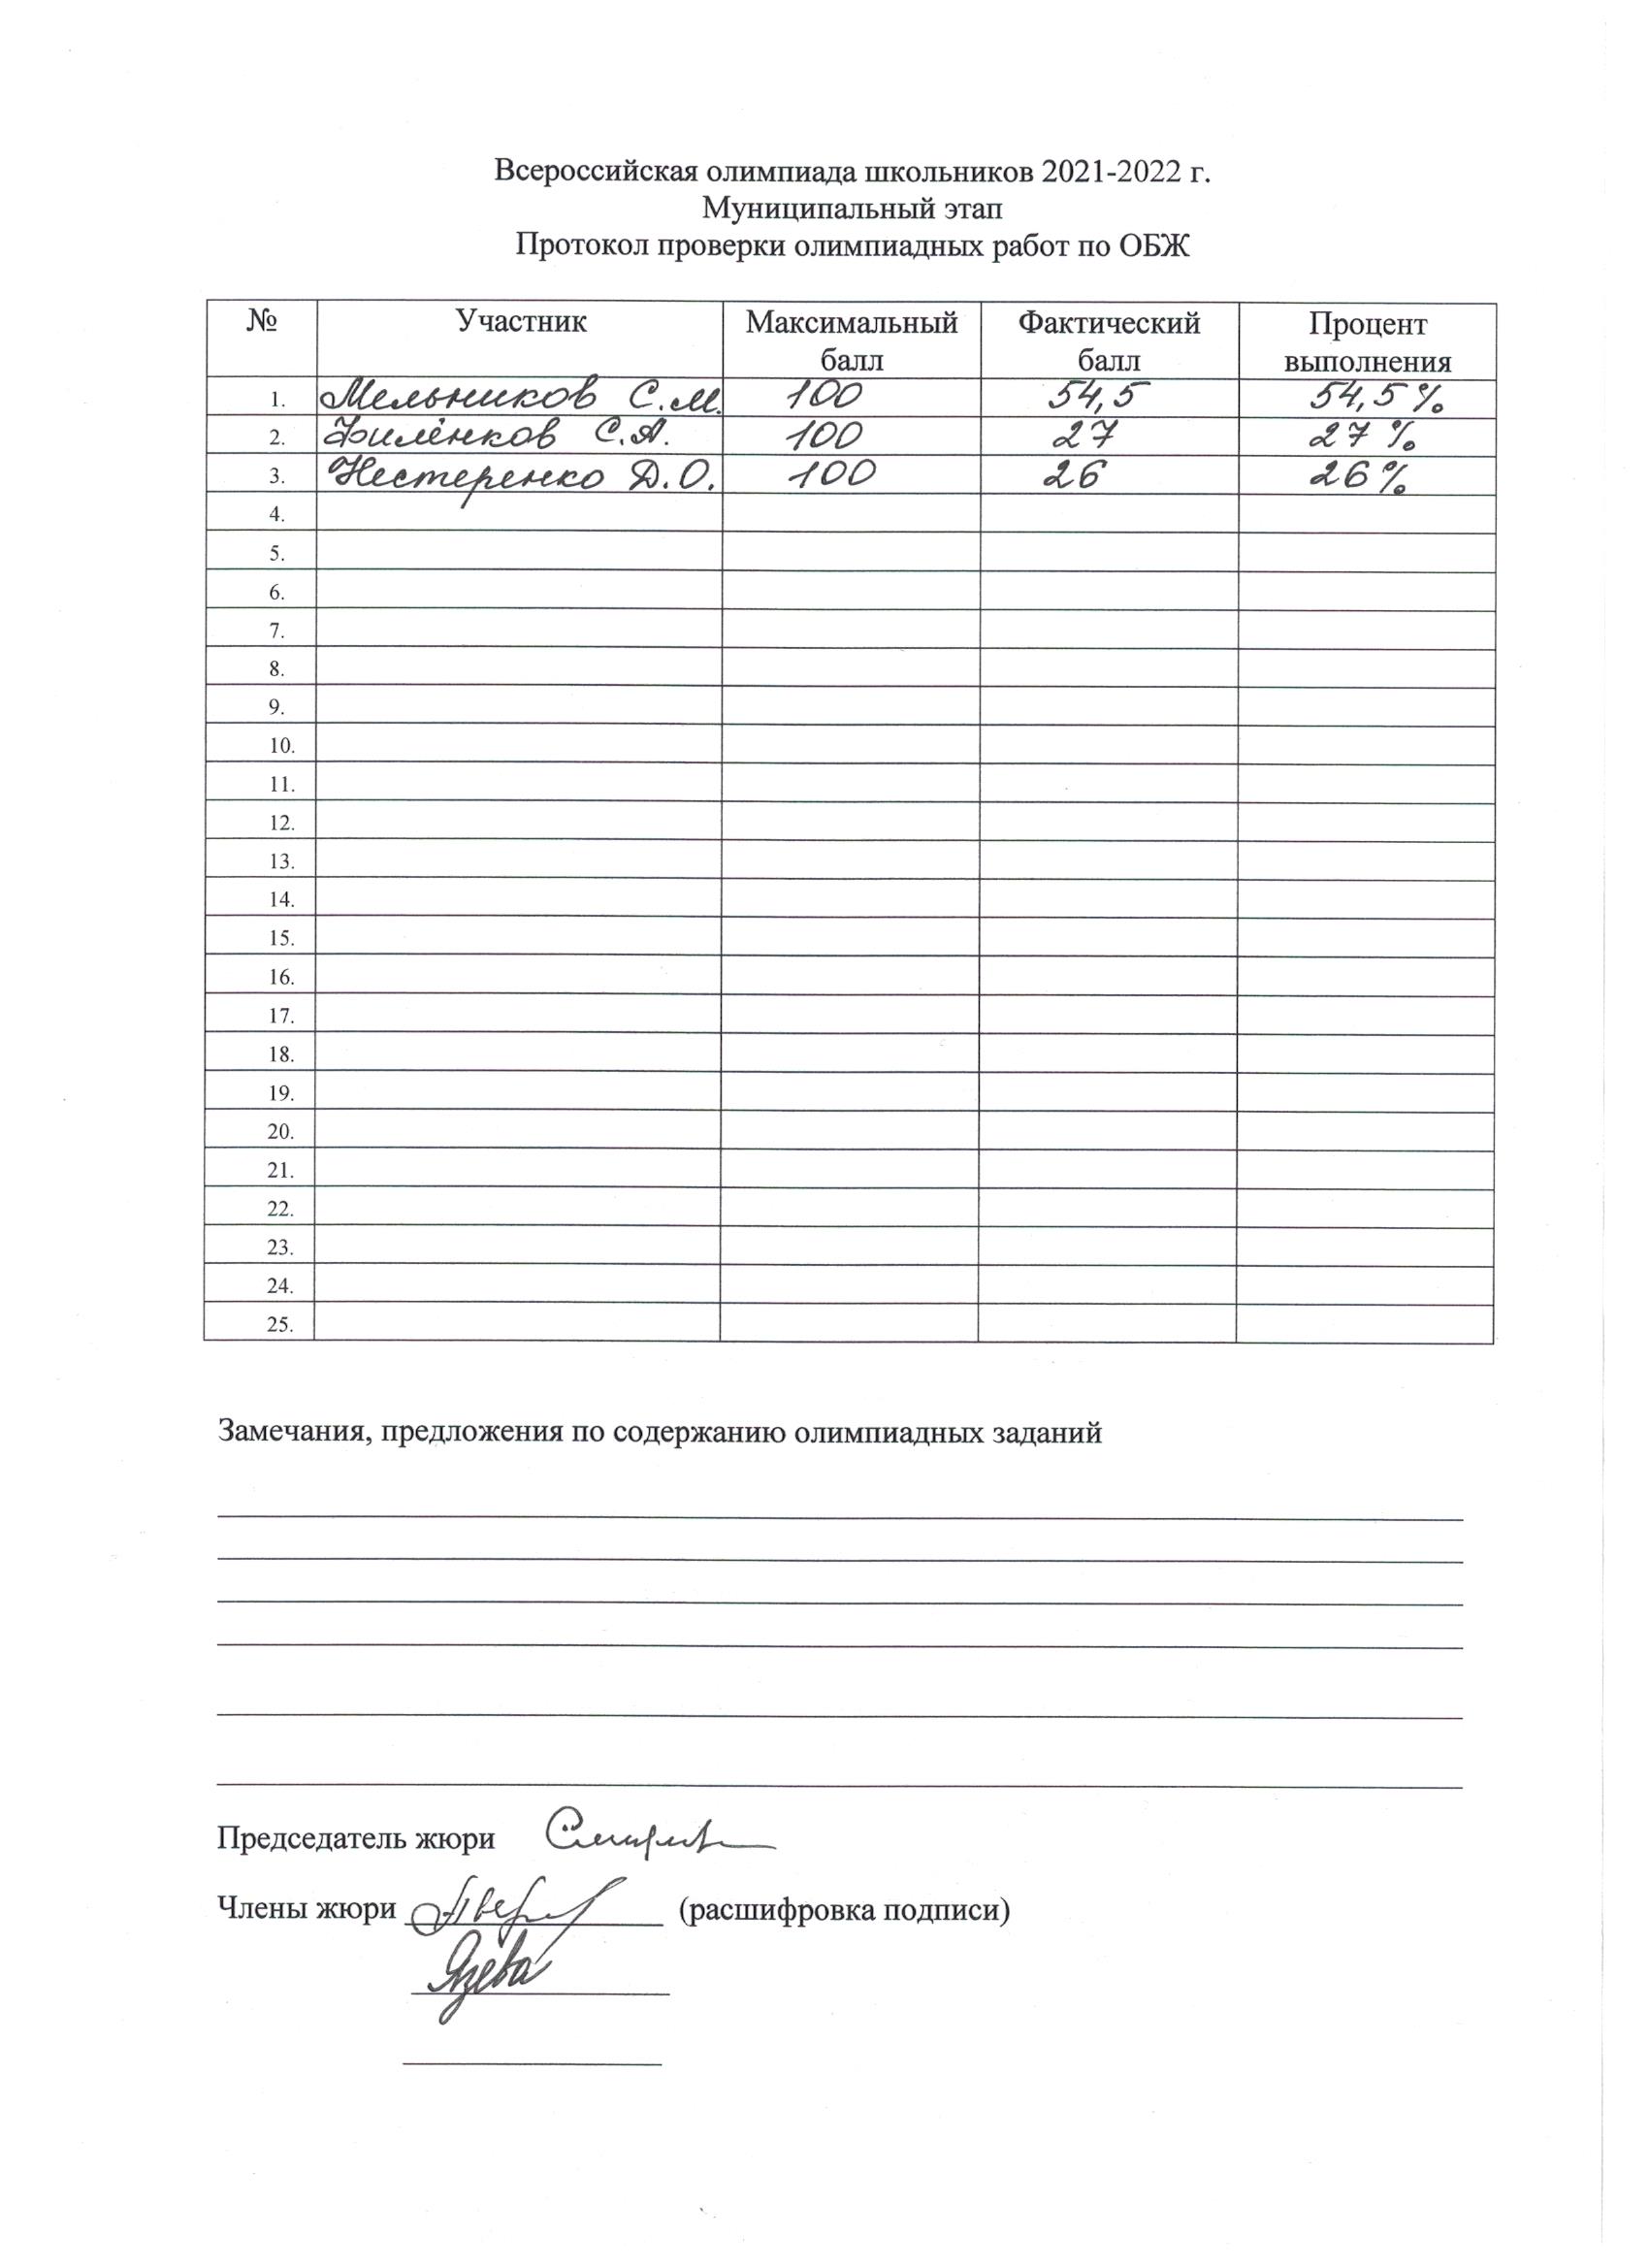 Всероссийская олимпиада школьников 2021-2022 г.
Муниципальный этап
Протокол проверки олимпиадных работ по ОБЖ
№ Участник Максимальный балл Фактический балл Процент выполнения
1. Мельников С.М. 100 54,5 54,5%
2. Филёнков С.А. 100 27 27%
3. Нестеренко Д.О. 100 26 26%
4.
5.
6.
7.
8.
9.
10.
11.
12.
13.
14.
15.
16.
17.
18.
19.
20.
21.
22.
23.
24.
25.
Замечания, предложения по содержанию олимпиадных заданий
Председатель жюри
Члены жюри (расшифровка подписи)
Язева